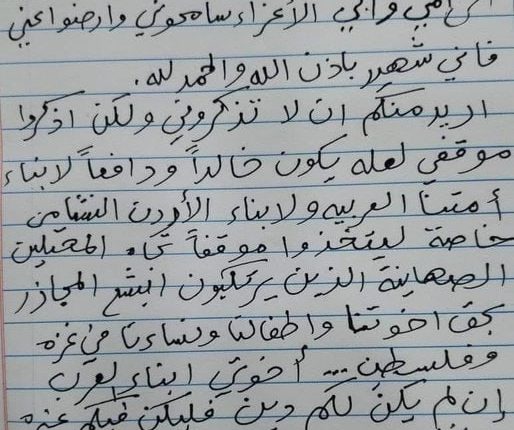 أمي وأبي الأعزاء سامحوني وارضوا عني
فاني شهيد باذن الله والحمد لله.
اريد منكم ان لا تذكروني ولكن اذكروا
موقفي لعله يكون خالداً ودافعاً لابناء
أمتنا العربيه ولابناء الأردن النشامى
خاصة ليتخذوا موقفاً تجاه المحتلين
الصهاينة الذين يرتكبون ابشع المجازر
بحق اخوتنا واطفالنا ونساءنا في غزه
وفلسطين... أخوتي ابناء العرب
إن لم يكن لكم دين فليكن فيكم